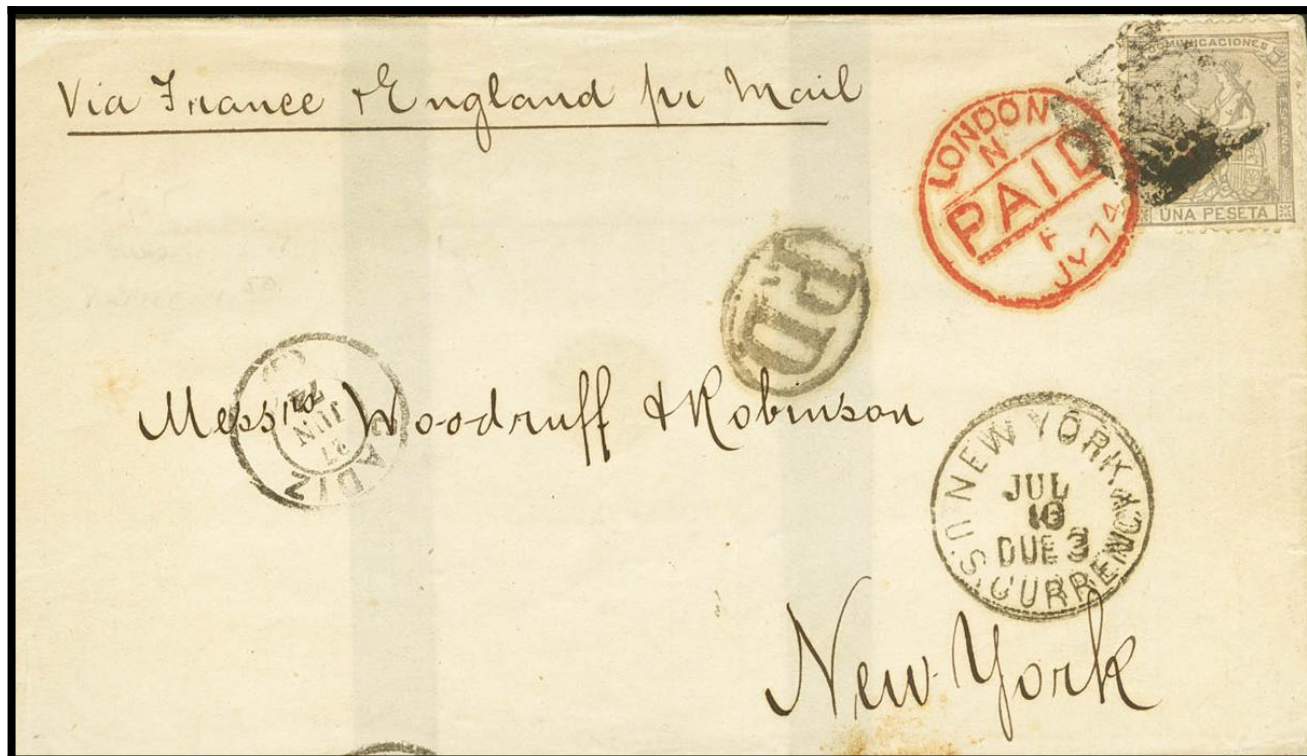 Via France & England pr Mail
COMUNICACIONES
ESPAÑA
UNA PESETA
LONDON
N
PAID
F
JY 74
PD
CADIZ
27
JUN
74
Messrs Woodruff & Robinson
NEW YORK.
JUL
DUE 3
U.S. CURRENCY.
New York